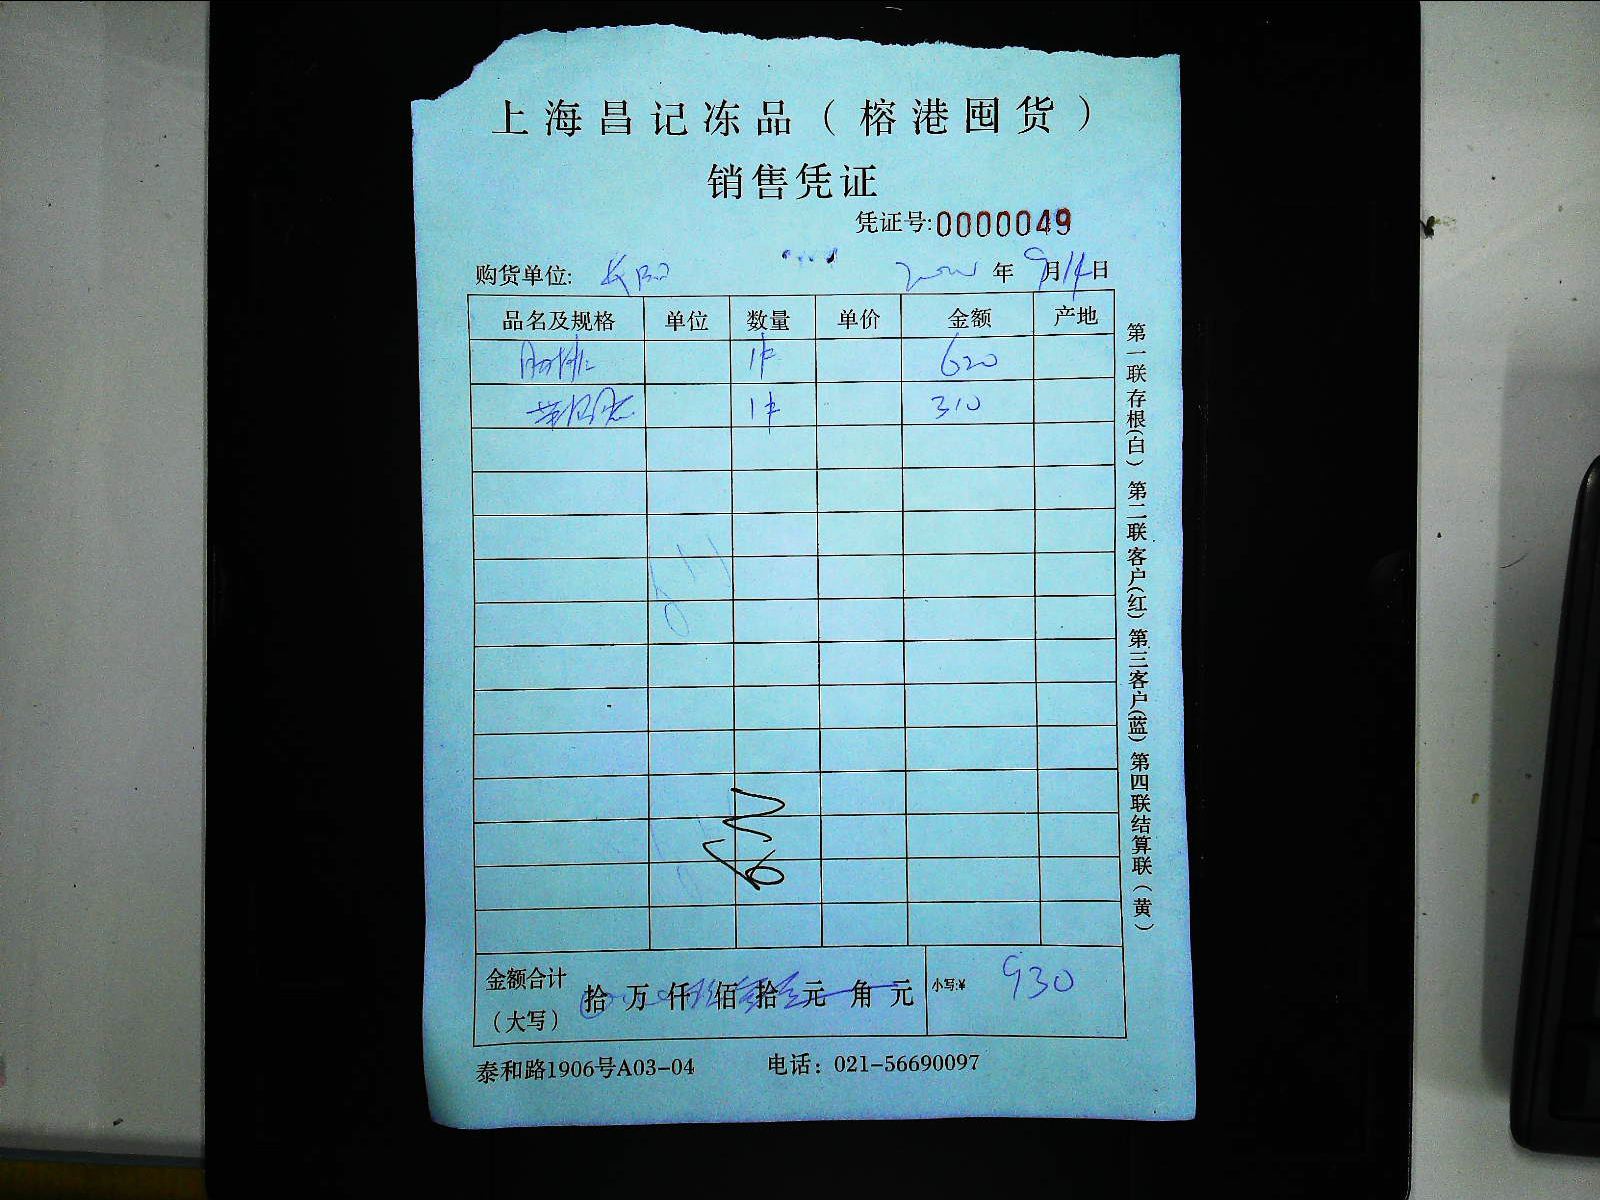 上海昌记冻品（榕港囤货）
销售凭证
凭证号:0000049
购货单位: 年 9月14日
品名及规格 单位 数量 单价 金额 产地
1件 620
1件 310
金额合计（大写） 拾 万 仟 佰 拾 元 角 元 小写:¥ 930
泰和路1906号A03-04 电话：021-56690097
第一联存根(白) 第二联客户(红) 第三客户(蓝) 第四联结算联（黄）